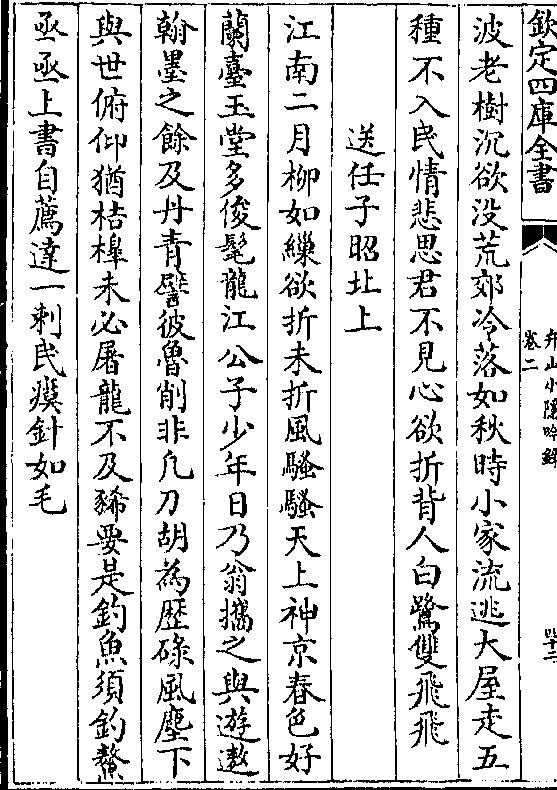 欽定四庫全書
弁山小隱吟錄
卷二
四十二
波老樹沉欲没荒郊冷落如秋時小家流逃大屋走五
種不入民情悲思君不見心欲折背人白鷺雙飛飛
送任子昭北上
江南二月柳如繅欲折未折風騷騷天上神京春色好
蘭臺玉堂多俊髦龍江公子少年日乃翁攜之與遊遨
翰墨之餘及丹青譬彼魯削非凡刀胡為歴碌風塵下
與世俯仰猶桔橰未必屠龍不及豨要是釣魚須釣鰲
亟亟上書自薦達一刺民瘼針如毛